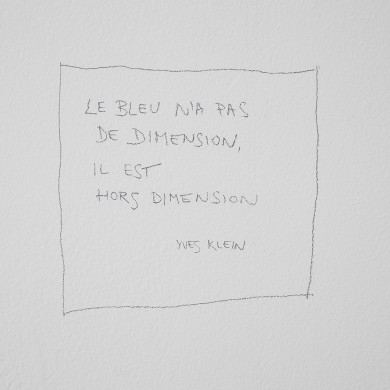 LE BLEU N'A PAS
DE DIMENSION,
IL EST
HORS DIMENSION
YVES KLEIN